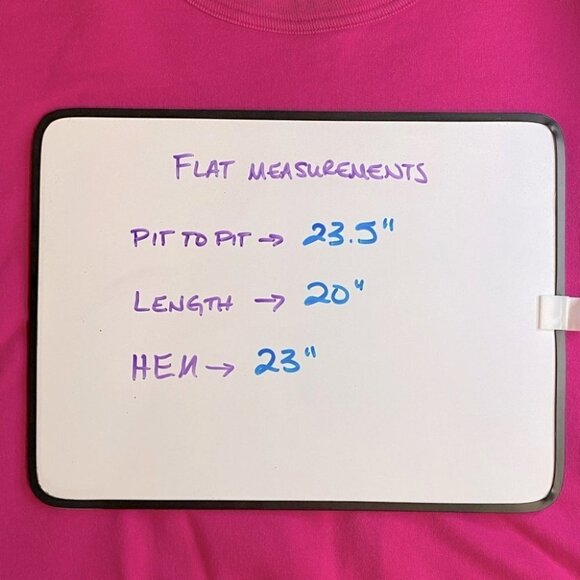 FLAT MEASUREMENTS
PIT TO PIT → 23.5"
LENGTH → 20"
HEM → 23"